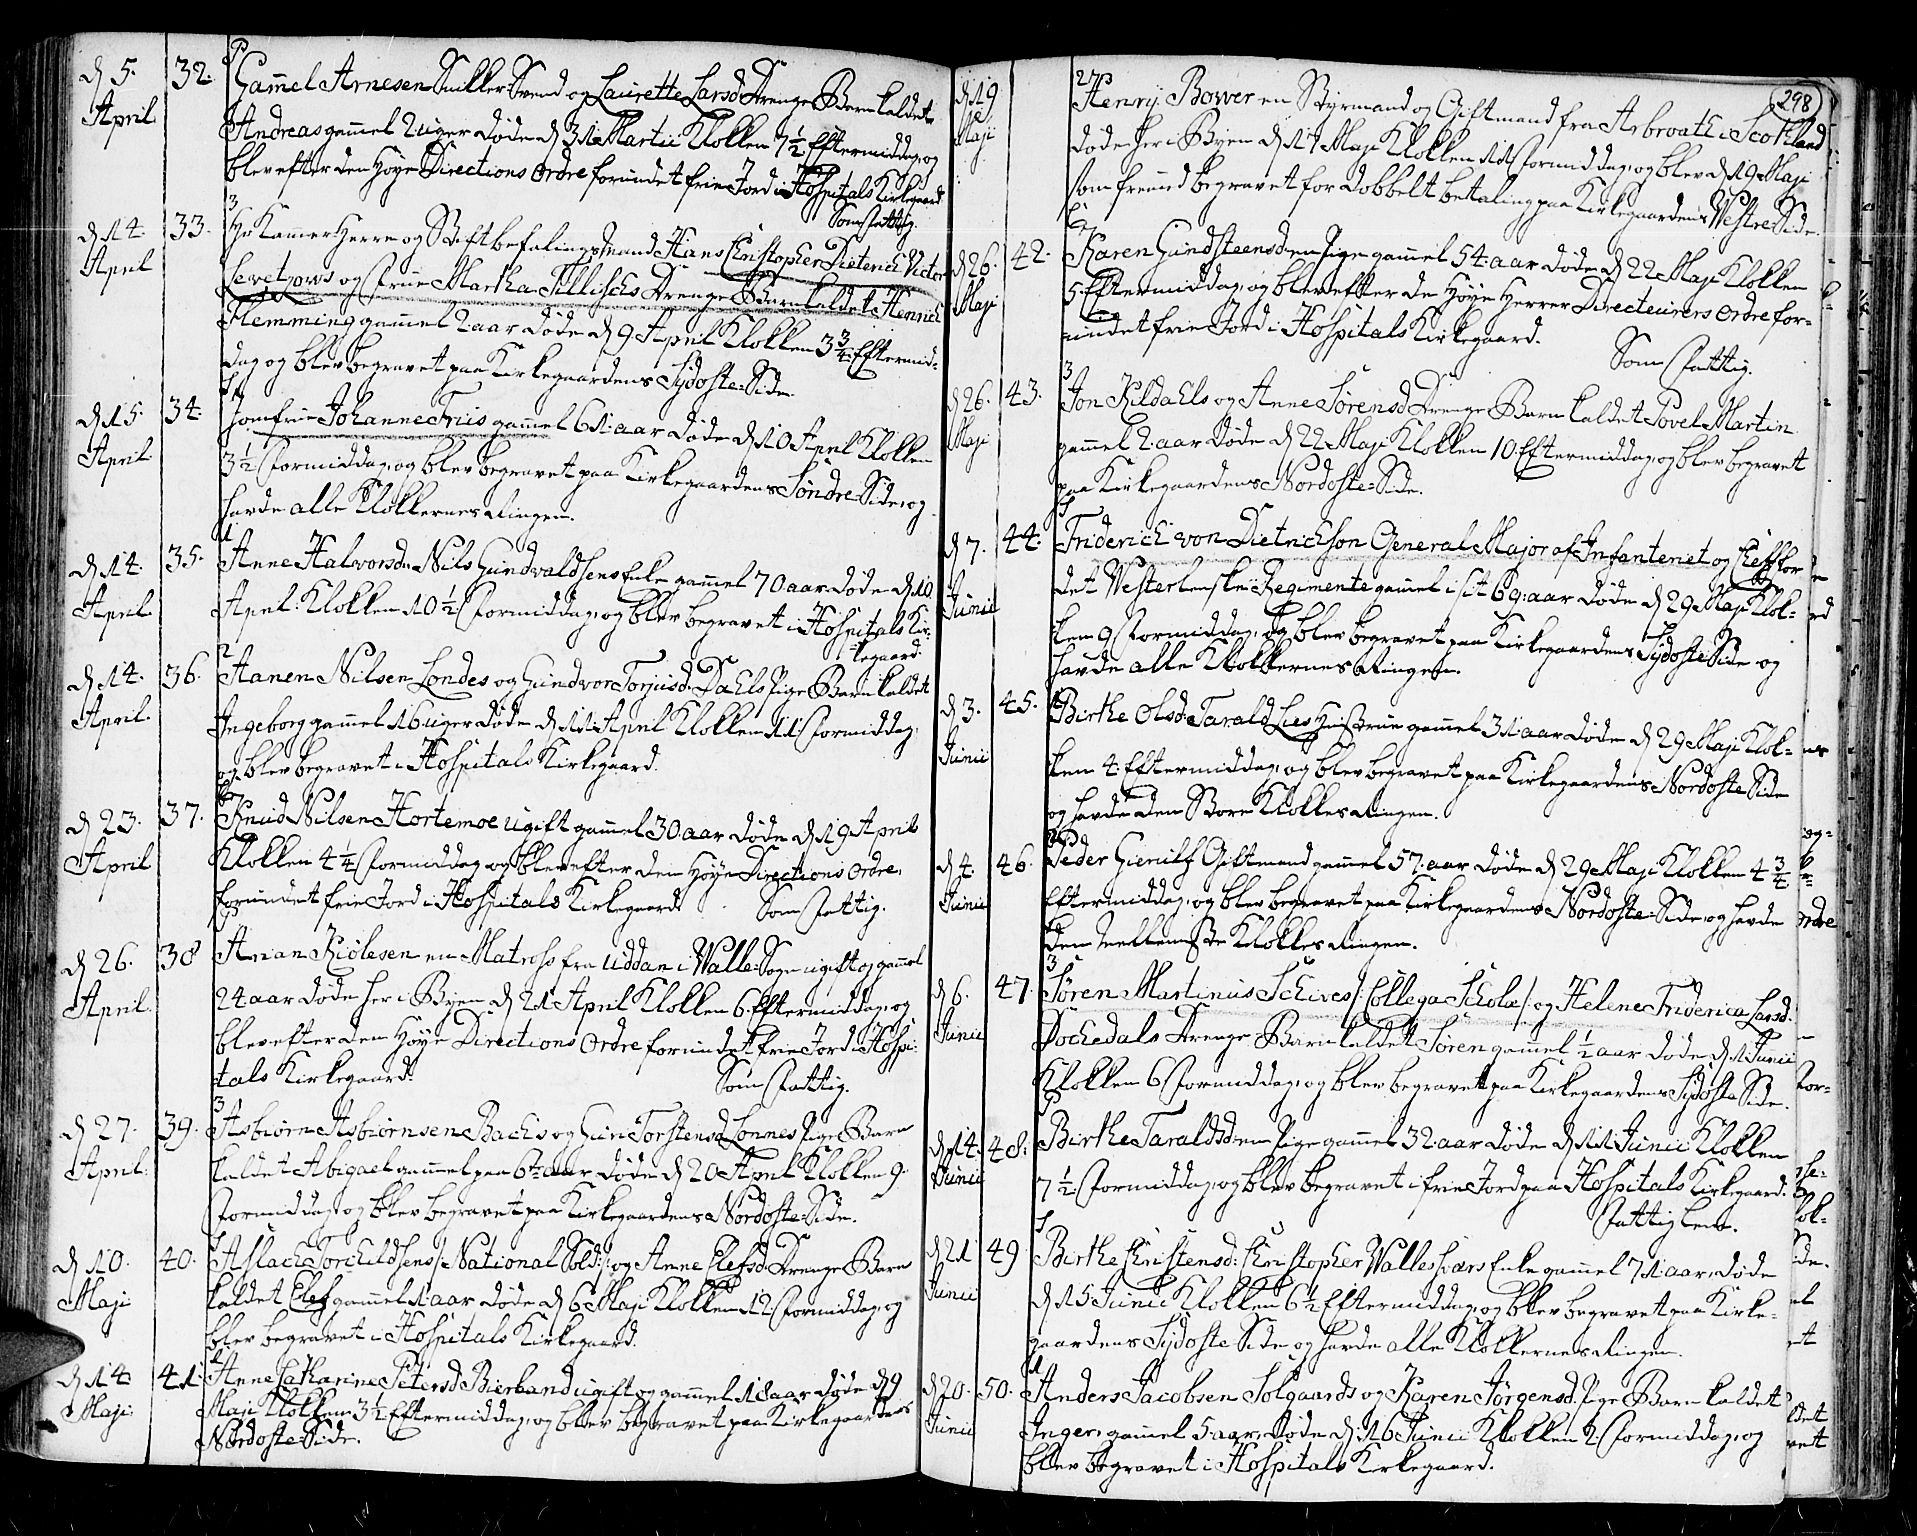 d 5. April 32. Gammel Arnesen Snikker Svend og Laurette Larsd. Drenge Barn kaldet
Andreas gammel 2 uger døde d 31 Martii Klokken 7½ Eftermiddag, og
blev efter den Høye Directions Ordre forundet frie Jord i Hospitals Kirkegaard
Som fattig.
3
d 14. April 33. Hr Kammer Herre og Stiftbefalingsmand Hans Christopher Dieterich Victor
Levetzows og Frue Martha Tillischs Drenge Barn kaldet Henrich
Flemming gammel 2 aar døde d 9 April Klokken 3¾ Eftermid-
dag og blev begravet paa Kirkegaardens Sydoste Side.
d 15. April 34. Jomfrue Johanne Friis gammel 61 aar døde d 10 April Klokken
3½ Formiddag, og blev begravet paa Kirkegaardens Søndre Side, og
havde alle Klokkernes Ringen.
1
d 14. April 35. Anne Halvorsd. Nils Gundvaldsens Enke gammel 70 aar døde d 10
April Klokken 10½ Formiddag, og blev begravet i Hospitals Kir-
kegaard.
2
d 14. April 36. Hanen Nilsen Londes og Gundvor Torjusd. Dahls Pige Barn kaldet
Ingeborg gammel 16 uger døde d 11 April Klokken 11 Formiddag,
og blev begravet i Hospitals Kirkegaard.
d 23. April 37. Knud Nilsen Hortemoe ugift gammel 30 aar døde d 19 April
Klokken 4¼ Formiddag og blev efter den Høye Directions Ordre,
forundet frie Jord i Hospitals Kirkegaard. Som Fattig.
d 26. April 38 Arian Kiølesen en Matros fra Uddan i Walle Sogn ugift og gammel
24 aar døde her i Byen d 21 April Klokken 6 Eftermiddag, og
blev efter den Høye Directions Ordre forundet frie Jord i Hospi-
tals Kirkegaard. Som Fattig.
3
d 27. April. 39. Asbiørn Asbiørnsen Bachs og Guri Torstensd. Lonnes Pige Barn
kaldet Abigael gammel paa 6te aar døde d 20 April Klokken 9.
Formiddag og blev begravet paa Kirkegaardens Nordoste Side.
d 10. Maji 40. Aslach Torchildsens /: National Sold: :/ og Anne Elefsd. Drenge Barn
kaldet Elef gammel 1 aar døde d 6 Maji Klokken 12 Formiddag, og
blev begravet i Hospitals Kirkegaard.
d 14. Maji. 41. Anne Catharine Petersd. Bierband ugift og gammel 18 aar døde d 9
Maji Klokken 3½ Eftermiddag, og blev begravet paa Kirkegaardens
Nordoste Side.
298
d 19 Maji Henry Bower en Styrmand og Giftmand fra Arbroath i Scotland
døde her i Byen d 17 Maji Klokken 11 Formiddag, og blev d 19 Maji
som fremmed begravet for dobbelt betaling paa Kirkegaardens Westre Side.
d 26. Maji 42. Karen Gundsteensd. en Pige gammel 54 aar døde d 22 Maji Klokken
5 Eftermiddag, og blev efter de Høye Herrer Directeurers Ordre for-
undet frie Jord i Hospitals Kirkegaard. Som Fattig.
3
d 26. Maji 43. Jon Kildahls og Anne Sørensd. Drenge Barn kaldet Povel Martin
gammel 2 aar døde d 22 Maji Klokken 10 Eftermiddag, og blev begravet
paa Kirkegaardens Nordoste Side.
d 7. Junii 44. Friderich von Dietrichson General Major af Infanteriet og Chef for
det Westerlenske Regimente gammel i sit 69 aar døde d 29 Maji Klok-
ken 9 Formiddag, og blev begravet paa Kirkegaardens Sydoste Side og
havde alle Klokkernes Ringen.
d 3. Junii 45. Birthe Olsd. Tarald Lies Hustrue gammel 31 aar døde d 29 Maji Klok-
ken 4 Eftermiddag, og blev begravet paa Kirkegaardens Nordoste Side
og havde den Store Klokkes Ringen.
d 4. Junii 46. Peder Gierulf Giftmand gammel 57 aar døde d 29 Maji Klokken 4¾
Eftermiddag, og blev begravet paa Kirkegaardens Nordoste Side, og havde
den Mellemste Klokkes Ringen.
3
d 6. Junii 47. Søren Martinus Schives /: Collega Scholæ :/ og Helene Friderica Larsd.
Dochedals Drenge Barn kaldet Søren gammel ½ aar døde d 1 Junii
Klokken 6 Formiddag, og blev begravet paa Kirkegaardens Sydoste Side.
d 14. Junii 48. Birthe Taraldsd. en Pige gammel 32 aar døde d 11 Junii Klokken
7½ Formiddag, og blev begravet i frie Jord paa Hospitals Kirkegaard.
Fattig Lem.
d 21 Junii 49 Birthe Christensd. Christopher Walleskiærs Enke gammel 71 aar, døde
d 15 Junii Klokken 6½ Eftermiddag, og blev begravet paa Kirke-
gaardens Sydoste Side og havde alle Klokkernes Ringen.
d 20. Junii 50. Anders Jacobsen Solgaards og Karen Jørgensd. Pige Barn kaldet
Inger, gammel 5 aar, døde d 16 Junii Klokken 2 Formiddag, og
blev begravet i Hospitals Kirkegaard.